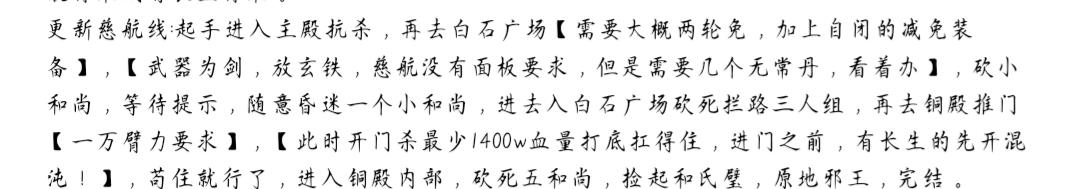 更新慈航线:起手进入主殿抗杀，再去白石广场【需要大概两轮免，加上自闭的减免装
备】，【武器为剑，放玄铁，慈航没有面板要求，但是需要几个无常丹，看着办】，砍小
和尚，等待提示，随意昏迷一个小和尚，进去入白石广场砍死拦路三人组，再去铜殿推门
【一万臂力要求】，【此时开门杀最少1400w血量打底扛得住，进门之前，有长生的先开混
沌！】，苟住就行了，进入铜殿内部，砍死五和尚，捡起和氏璧，原地邪王，完结。